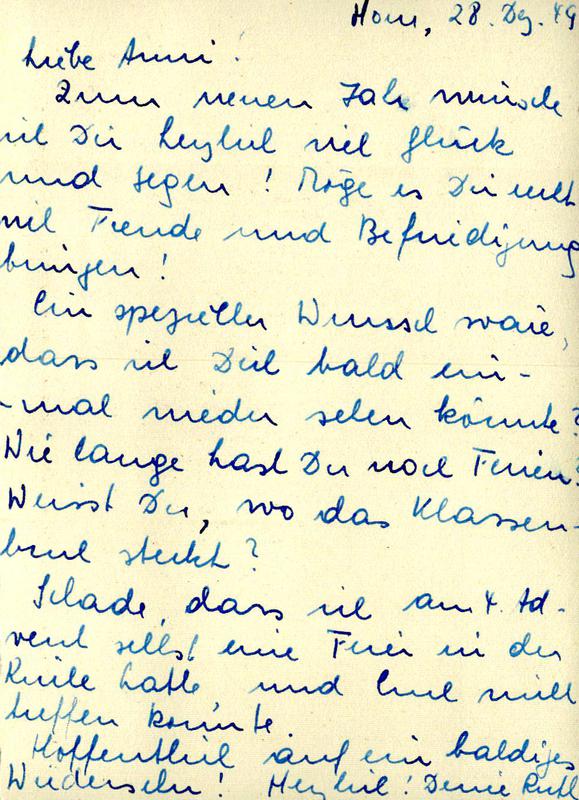 Horn, 28. Dez. 49
Liebe Anni!
Zum neuen Jahr wünsche
ich Dir herzlich viel Glück
und Segen! Möge es Dir recht
viel Freude und Befriedigung
bringen!
Ein spezieller Wunsch wäre,
dass ich Dich bald ein-
-mal wieder sehen könnte?
Wie lange hast Du noch Ferien?
Weisst Du, wo das Klassen-
buch steckt?
Schade, dass ich am 4. Ad-
vent selbst eine Feier in der
Kirche hatte und Euch nicht
treffen konnte.
Hoffentlich auf ein baldiges
Wiedersehn! Herzlich! Deine Ruth